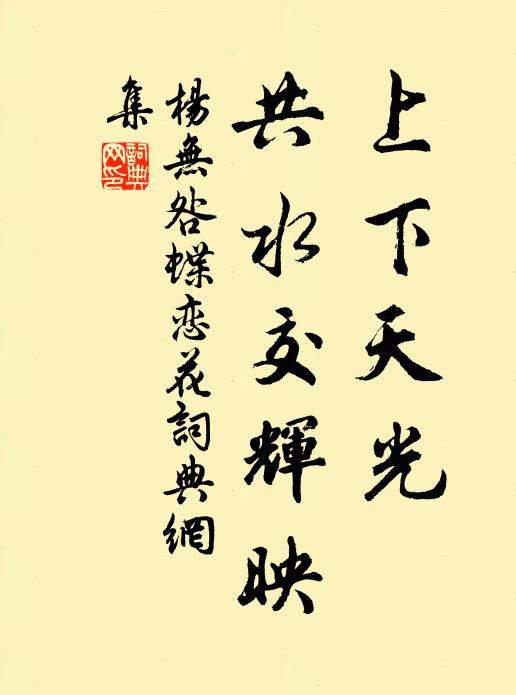 上下天光
共水交輝映
楊無咎蝶恋花詞典網
集
詞典網印